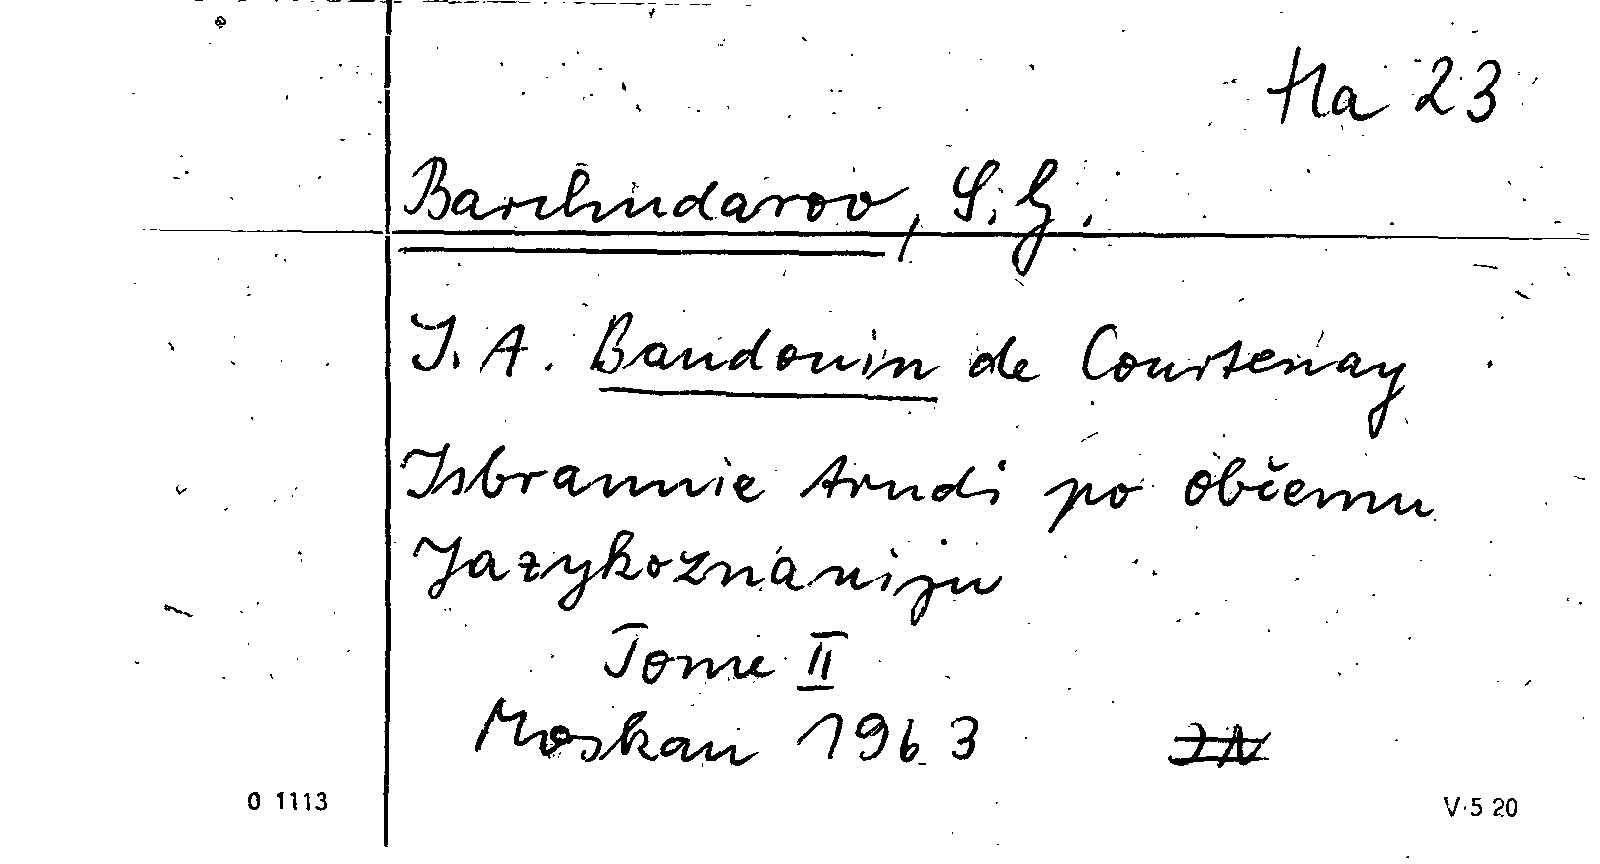 Ha 23
Barchudarov, S. G.
I. A. Baudouin de Courtenay
Isbrannie trudi po občemu
Jazykoznaniju
Tome II
Moskau 1963
0 1113
V·5 20